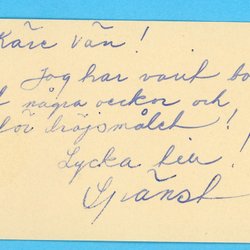 Käre vän!
Jag har varit bo
några veckor och
för dröjsmålet!
Lycka till!